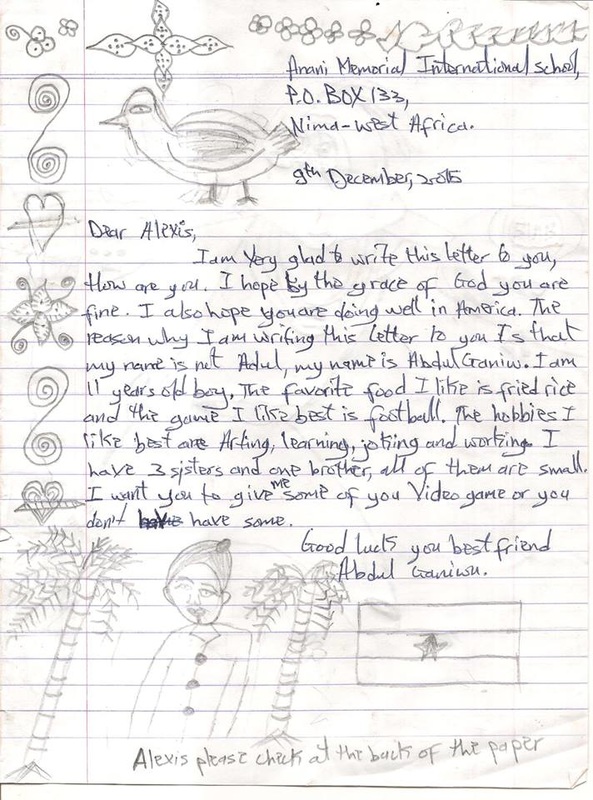 Anani Memorial International School,
P.O. BOX 133,
Nima-West Africa.
9th December, 2015
Dear Alexis,
I am Very glad to write this letter to you,
How are you. I hope by the grace of God you are
fine. I also hope you are doing well in America. The
reason why I am writing this letter to you Is that
my name is not Adul, my name is Abdul Ganiw. I am
11 years old boy. The favorite food I like is fried rice
and the game I like best is football. The hobbies I
like best are Arting, learning, joking and working. I
have 3 sisters and one brother, all of them are small.
I want you to give me some of you Video game or you
don't have some.
Good luck you best friend
Abdul Ganiwu.
Alexis please check at the back of the paper